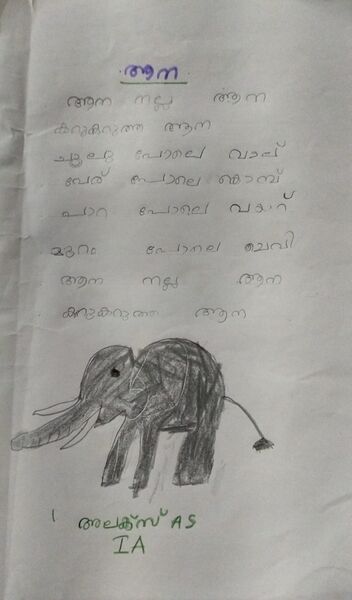 ആന
ആന നല്ല ആന
കറുകറുത്ത ആന
ചൂല് പോലെ വാല്
വേര് പോലെ കൊമ്പ്
പാറ പോലെ വയറ്
മുറം പോലെ ചെവി
ആന നല്ല ആന
കറുകറുത്ത ആന
അലക്സ് A S
I A